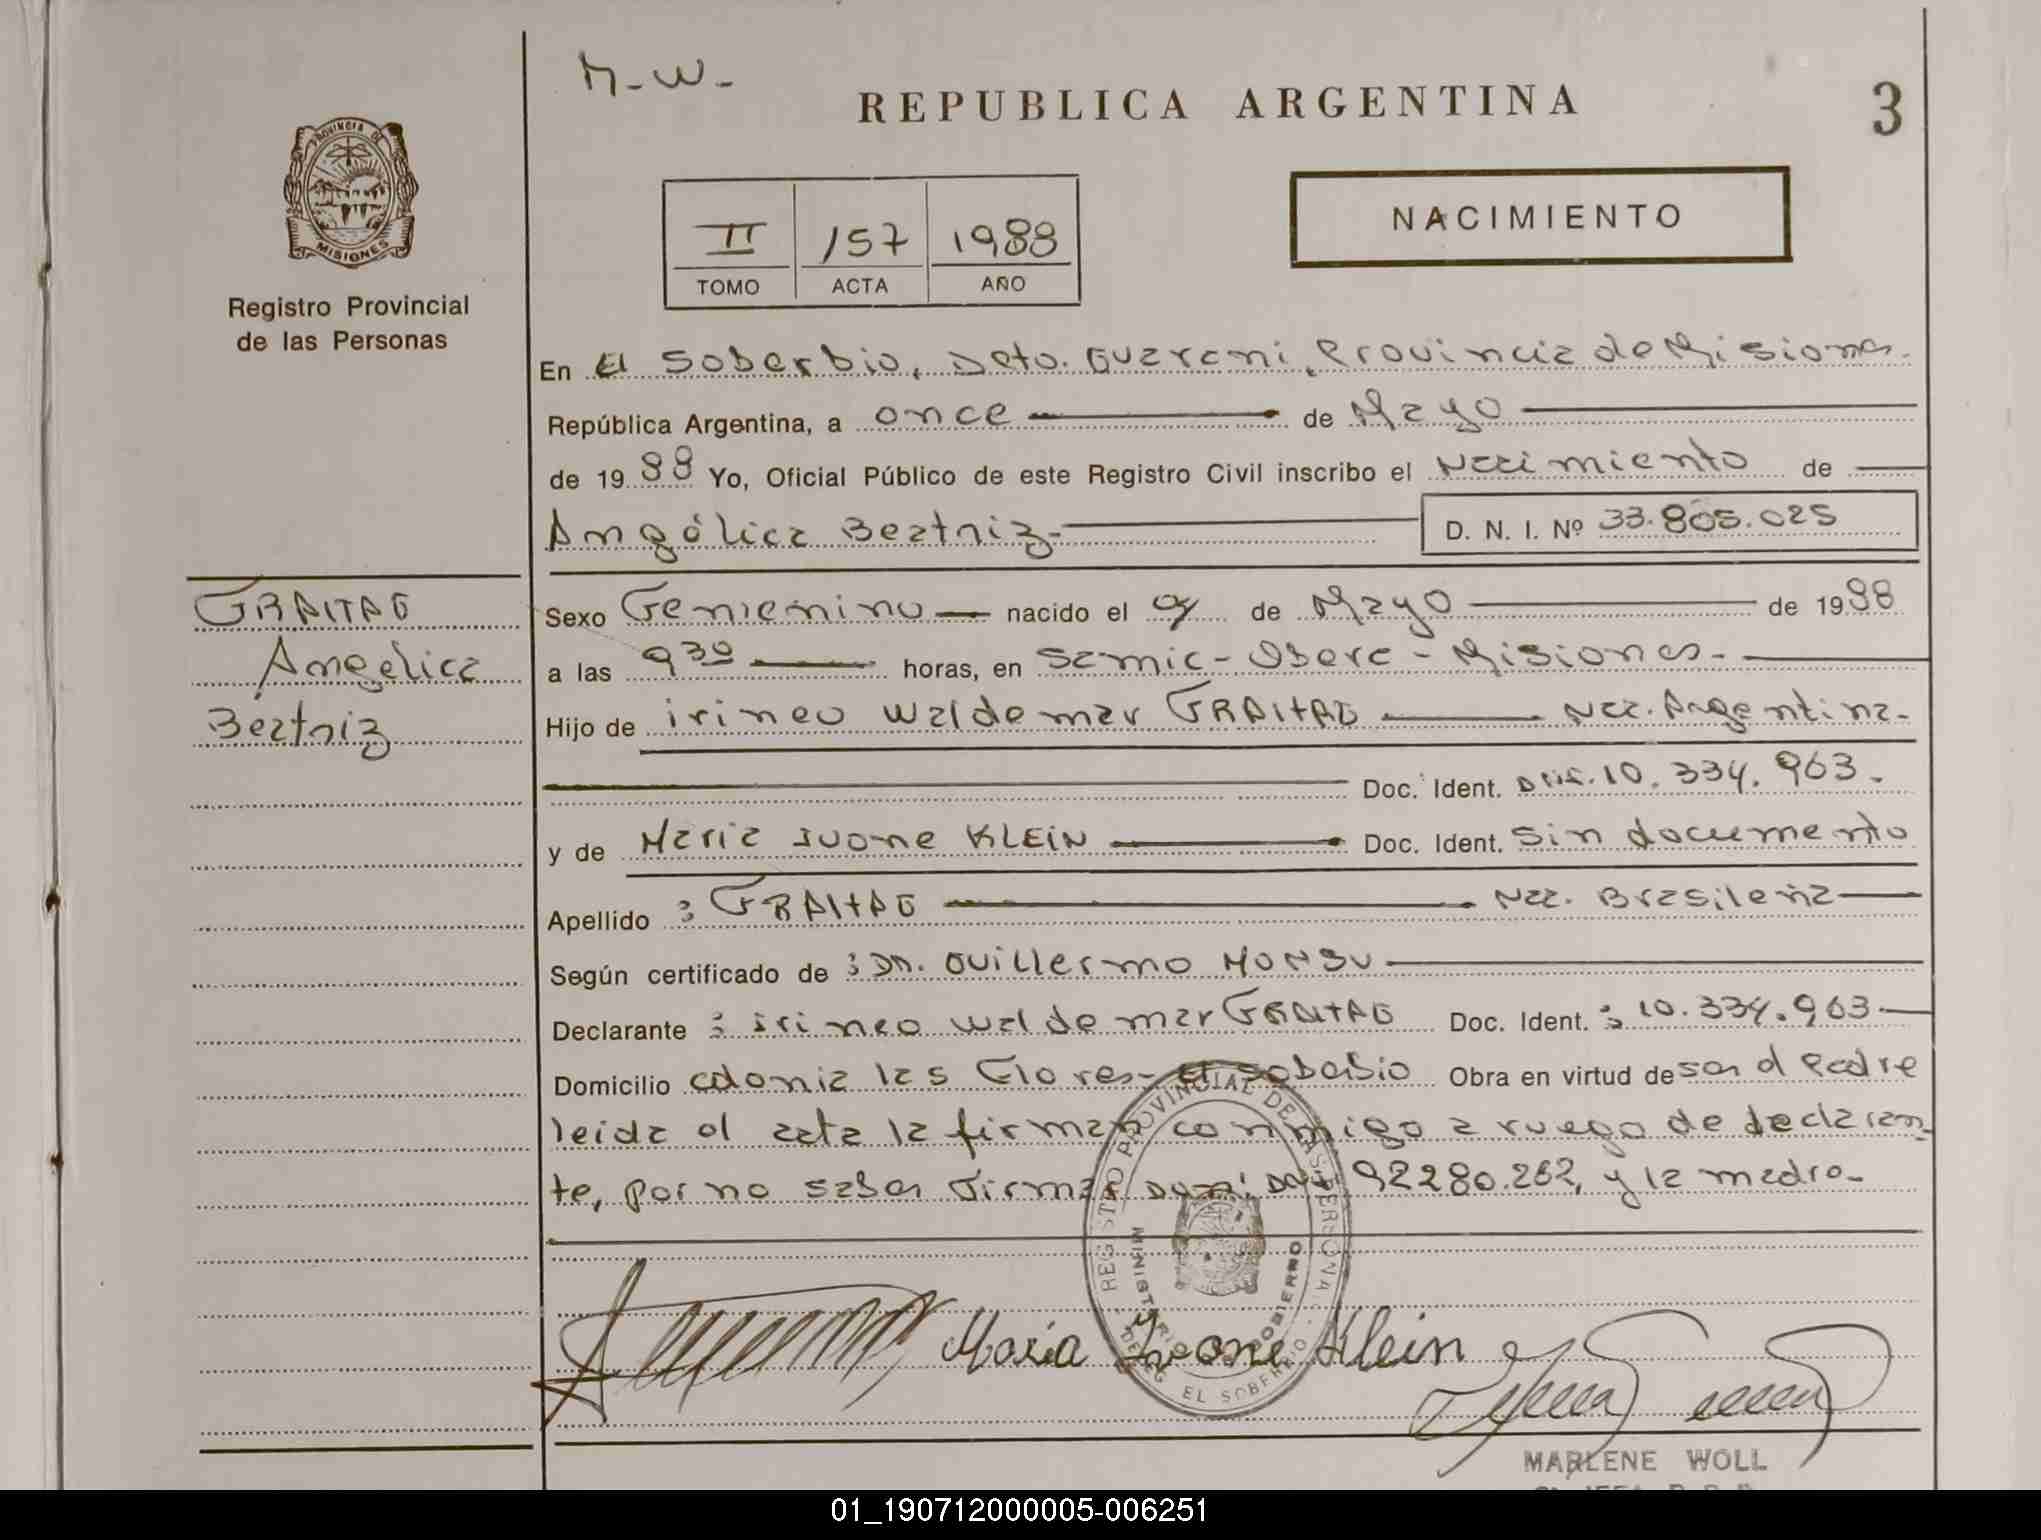 M-W-
REPUBLICA ARGENTINA
3
PROVINCIA DE
MISIONES
Registro Provincial
de las Personas
II 157 1988
TOMO ACTA AÑO
NACIMIENTO
En El Soberbio, Dpto. Guarani, Provincia de Misiones.
República Argentina, a once de Mayo
de 1988 Yo, Oficial Público de este Registro Civil inscribo el Nacimiento de
Angélica Beatriz- D. N. I. Nº 33.805.025
GRAITAO
Angelica
Beatriz
Sexo Femenino nacido el de Mayo de 1988
a las 9 30 horas, en Samic - Obera - Misiones-
Hijo de irineo Waldemar GRAITAO Nac. Argentina-
Doc. Ident. 10.334.963.
y de Maria Ivone KLEIN Doc. Ident. Sin documento
Apellido : GRAITAO Nac. Brasileña
Según certificado de : Dr. Guillermo
Declarante : irineo Waldemar GRAITAO Doc. Ident. : 10.334.963
Domicilio colonia las Flores- El Soberbio Obra en virtud de ser el Padre
leida el acta la firman conmigo a ruego de declaran-
te, por no saber firmar 92280.262, y la madre-
REGISTRO PROVINCIAL DE LAS PERSONAS
MINISTERIO GOBIERNO
DELEG. EL SOBERBIO
Maria Ivone Klein
MARLENE WOLL
01_190712000005-006251